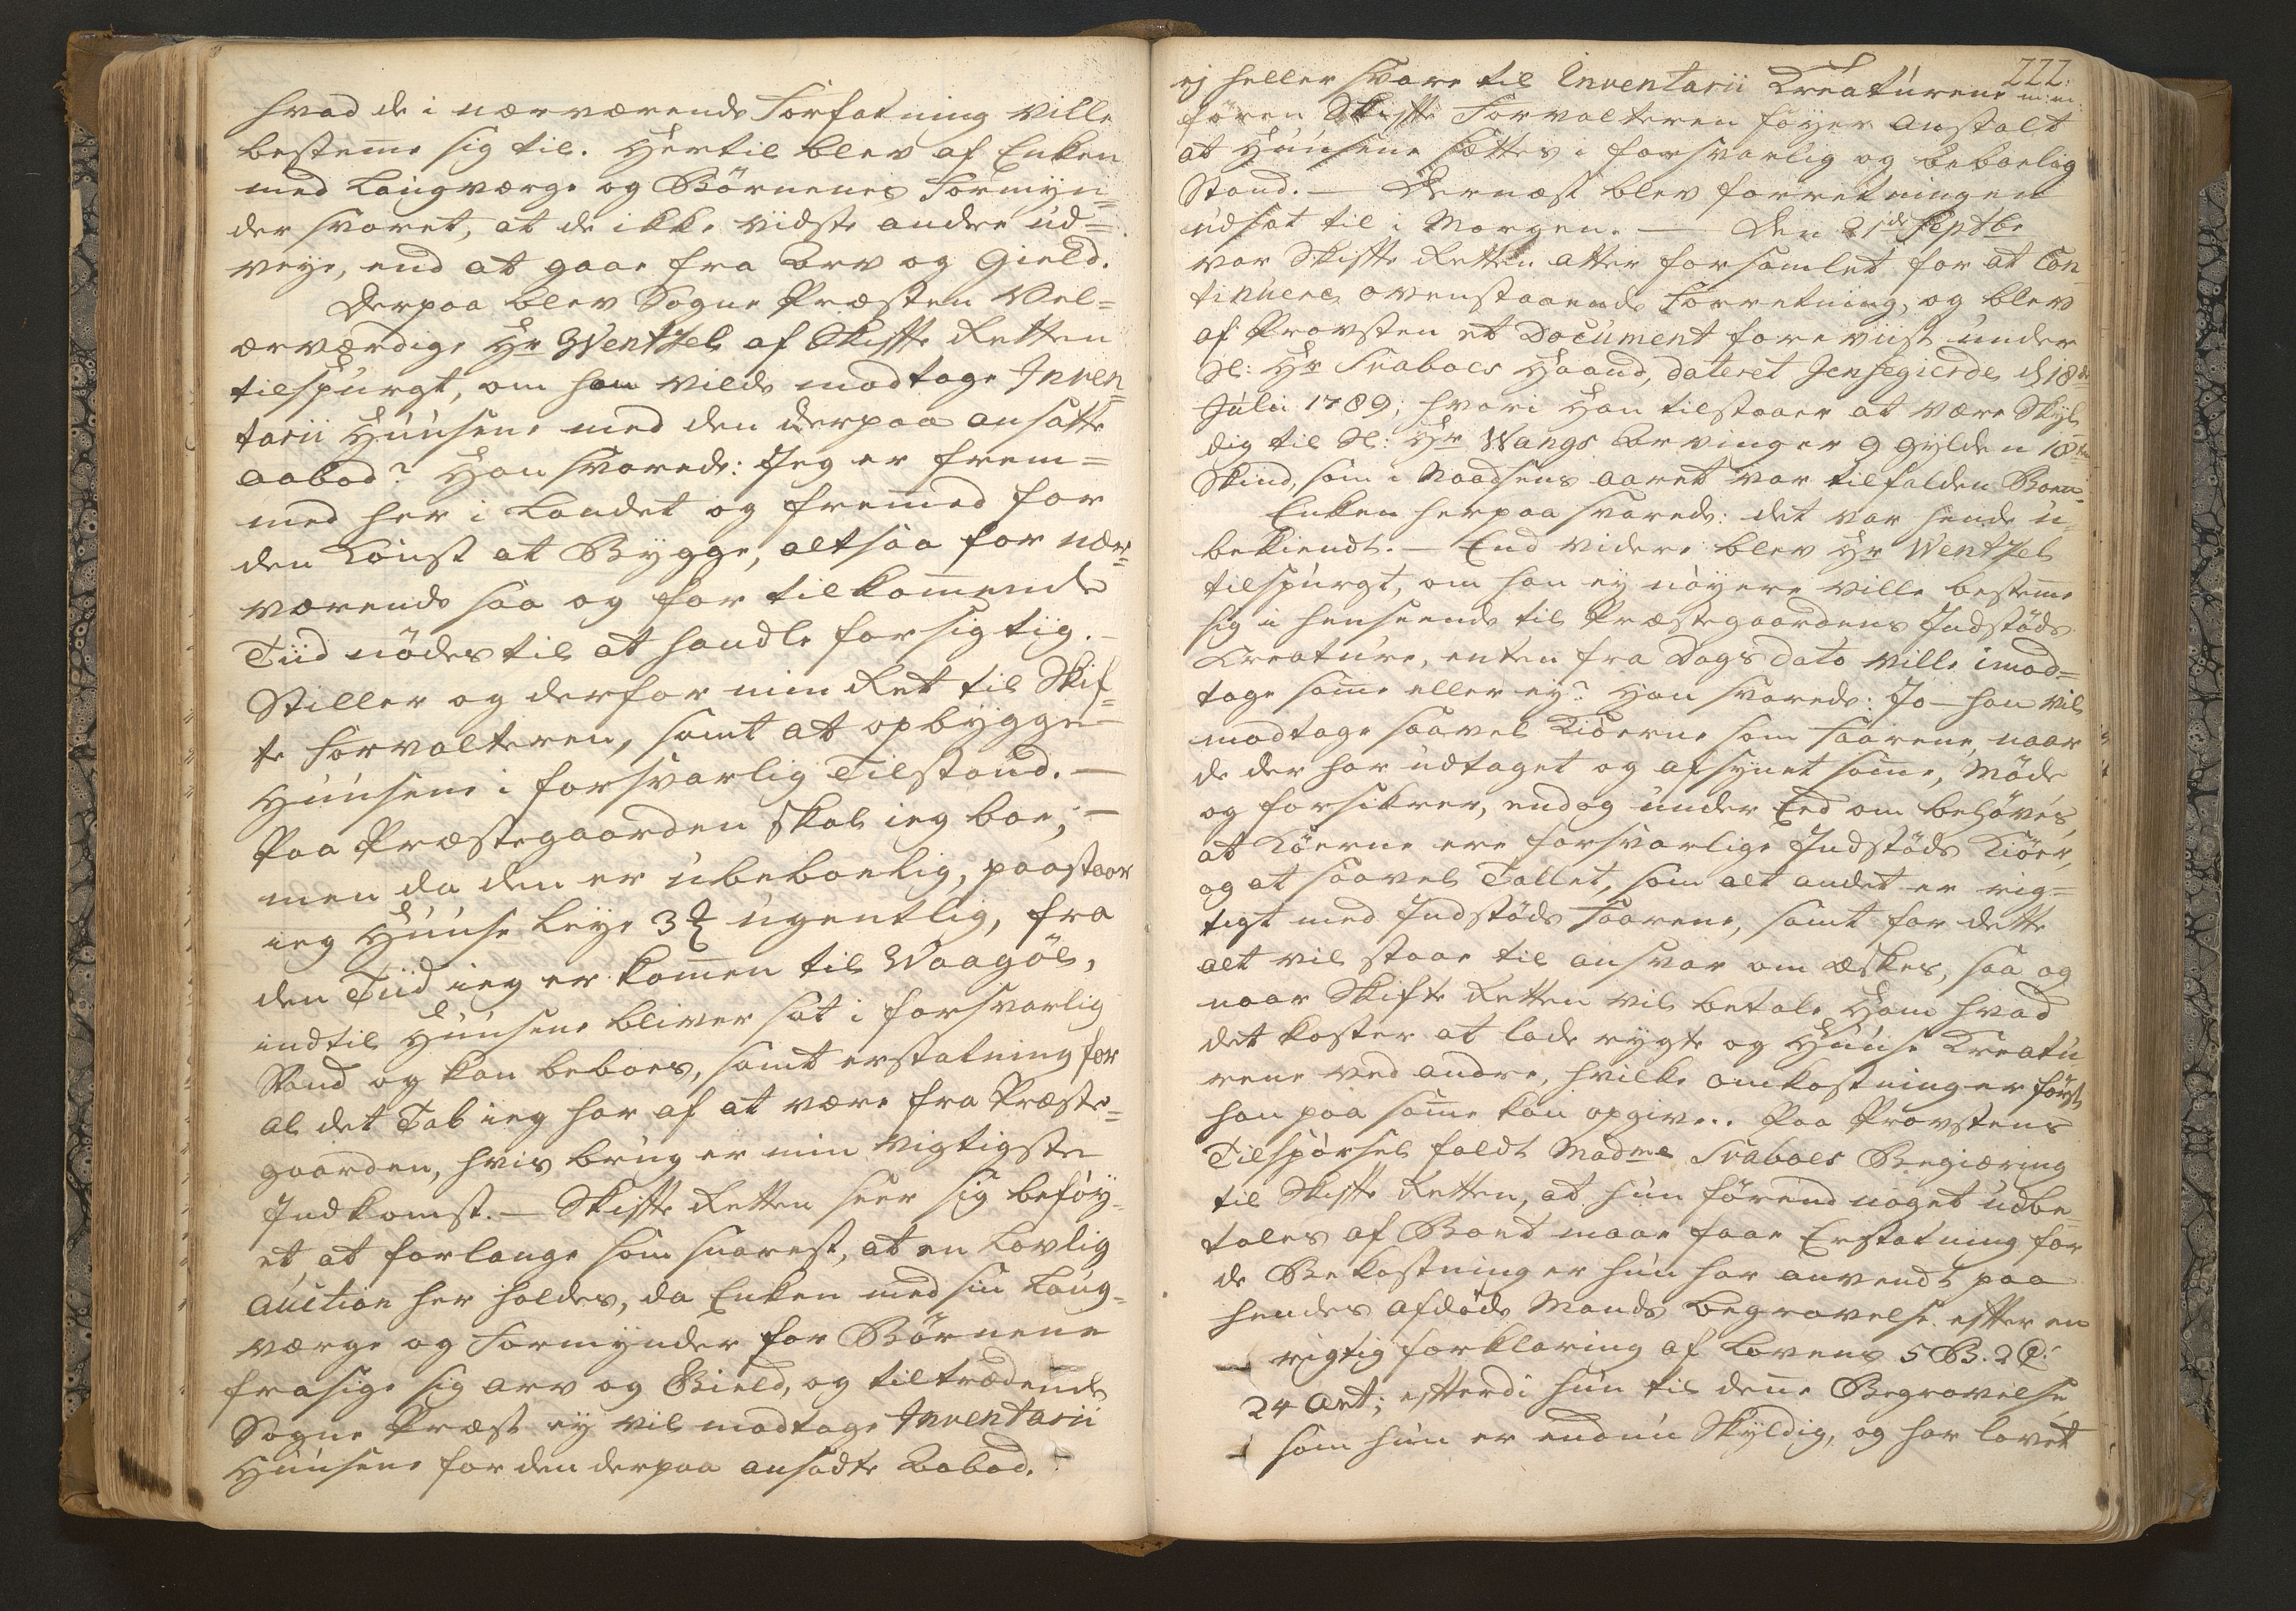 hvad de i nærværende Forfatning ville
bestem̄e sig til. Hertil blev af Enken
med Laugværge og Börnenes Formyn=
der svaret, at de ikke vidste andre ud=
veye, end at gaae fra Arv og Gield.
Derpaa blev Sogne Præsten Vel=
ærværdige Hr Wentzel af Skifte Retten
tilspurgt, om han vilde modtage Inven=
tarii Huusene med den derpaa ansatte
aabod? Han svarede: Jeg er frem=
med her i Landet og frem̄ed for
den Konst at Bygge, altsaa for nær=
værende saa og for tilkom̄ende
Tiid nödes til at handle forsigtig.
Stiller og derfor min Ret til Skif=
te Forvalteren, samt at opbygge
Huusene i forsvarlig Tilstand. —
Paa Præstegaarden skal ieg boe, —
men da den er ubeboelig, paastaar
ieg Huuse Leye 3 ugentlig, fra
den Tiid ieg er kom̄en til Waagöe,
indtil Huusene bliver sat i forsvarlig
Stand og kan beboes, samt erstatning for
al det Tab ieg har af at være fra Præste=
gaarden, hvis brug er min vigtigste
Indkomst. — Skifte Retten seer sig beföy=
et at forlange som snarest, at en Lovlig
Auction her holdes, da Enken med sin Laug=
værge og Formynder for Börnene
frasige sig Arv og Gield, og tiltrædende
Sogne Præst ey vil modtage Inventarii
Huusene for den derpaa ansadte Aabod.
222.
ej heller svare til Inventarii Creaturene m: m:
fören Skifte Forvalteren föyer Anstalt
at Huusene sættes i forsvarlig og beboelig
Stand. — Dernæst blev forretningen
udsat til i Morgen. — Den 21de Septbr
var Skifte Retten atter forsamlet for at Con
tinuere ovenstaaende Forretning, og blev
af Provsten et Document foreviist under
Sl: Hr Svaboes Haand, dateret Jensegierde d 18de
Julii 1789; hvori Han tilstaaer at være Skyl
dig til Sl: Hr Wangs Arvinger 9 Gylden 18
Skind, som i Naadsens aaret var tilfalden Boen
Enken herpaa svarede: det var hende u=
bekiendt. — End videre blev Hr Wentzel
tilspurgt, om han ey nöyere ville bestem̄e
sig i henseende til Præstegaardens Indstöds
Creature, enten fra Dags dato ville imod=
tage sam̄e eller ey? Han svarede: Jo — han vil
modtage saavel Kiöerne som Faarene, naar
de der har udtaget og afsynet sam̄e, Möde
og forsikrer, endog under Eed om behöves,
at Köerne ere forsvarlige Indstöds Kiöer,
og at saavel Tallet, som alt andet er rig=
tigt med Indstöds Faarene, samt for dette
alt vil staae til ansvar om æskes, saa og
naar Skifte Retten vil betale Ham hvad
det koster at lade rygte og Huuse Creatu
rene ved andre, hvilke omkostninger först
han paa sam̄e kan opgive. Paa Provstens
Tilspörsel faldt Madme Svaboes Begiæring
til Skifte Retten, at hun förend noget udbe=
tales af Boet maae faae Erstatning for
de Bekostninger hun har anvendt paa
hendes afdöde Mands begravelse efter en
rigtig forklaring af Lovens 5 B. 2 C:
24 Art; efterdi hun til den̄e Begravelse
som hun er endnu Skyldig, og har lovet